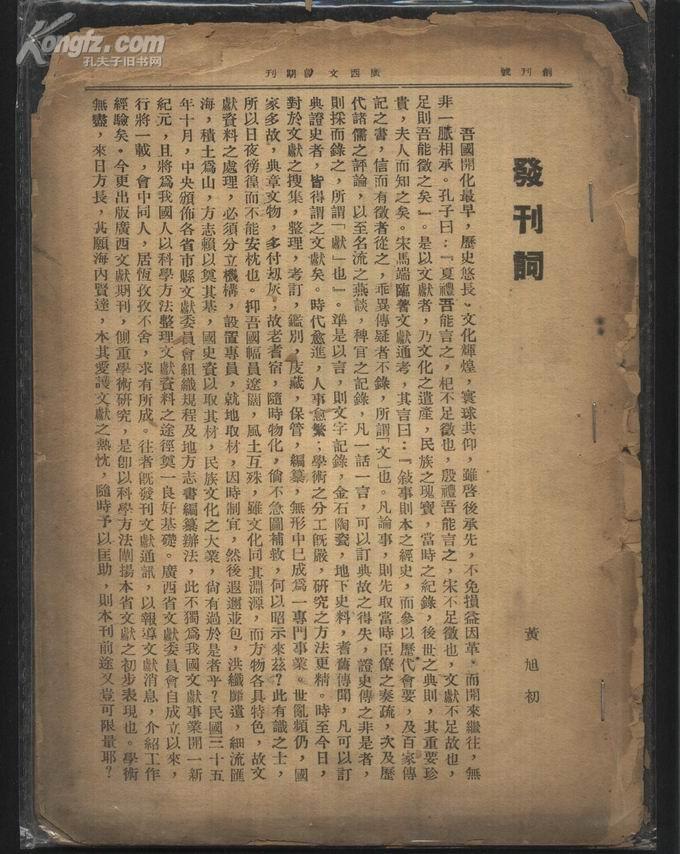 Kongfz.com
孔夫子旧书网
創刊號
廣西文獻期刊
發刊詞
黃旭初
吾國開化最早，歷史悠長，文化輝煌，寰球共仰，雖啓後承先，不免損益因革，而開來繼往，無
非一脈相承。孔子曰：『夏禮吾能言之，杞不足徵也，殷禮吾能言之，宋不足徵也，文獻不足故也，
足則吾能徵之矣』。是以文獻者，乃文化之遺產，民族之瑰寶，當時之紀錄，後世之典則，其重要珍
貴，夫人而知之矣。宋馬端臨著文獻通考，其言曰：『敍事則本之經史，而參以歷代會要，及百家傳
記之書，信而有徵者從之，乖異傳疑者不錄，所謂「文」也。凡論事，則先取當時臣僚之奏疏，次及歷
代諸儒之評論，以至名流之燕談，稗官之記錄，凡一話一言，可以訂典故之得失，證史傳之是非者，
則採而錄之，所謂「獻」也』。準是以言，則文字記錄，金石陶瓷，地下史料，耆舊傳聞，凡可以訂
典證史者，皆得謂之文獻矣。時代愈進，人事愈繁；學術之分工旣嚴，研究之方法更精。時至今日，
對於文獻之搜集，整理，考訂，鑑別，庋藏，保管，編纂，無形中已成爲一專門事業。世亂頻仍，國
家多故，典章文物，多付刼灰，故老耆宿，隨時物化，倘不急圖補救，何以昭示來茲？此有識之士，
所以日夜徬徨而不能安枕也。抑吾國幅員遼闊，風土互殊，雖文化同其淵源，而方物各具特色，故文
獻資料之處理，必須分立機構，設置專員，就地取材，因時制宜，然後遐邇並包，洪纖靡遺，細流匯
海，積土爲山，方志賴以奠其基，國史資以取其材，民族文化之大業，尙有過於是者乎？民國三十五
年十月，中央頒佈各省市縣文獻委員會組織規程及地方志書編纂辦法，此不獨爲我國文獻事業開一新
紀元，且將爲我國人以科學方法整理文獻資料之途徑奠一良好基礎。廣西省文獻委員會自成立以來，
行將一載，會中同人，居恆孜孜不舍，求有所成。往者旣發刊文獻通訊，以報導文獻消息，介紹工作
經驗矣。今更出版廣西文獻期刊，側重學術研究，是卽以科學方法闡揚本省文獻之初步表現也。學術
無盡，來日方長，甚願海內賢達，本其愛護文獻之熱忱，隨時予以匡助，則本刊前途又豈可限量耶？